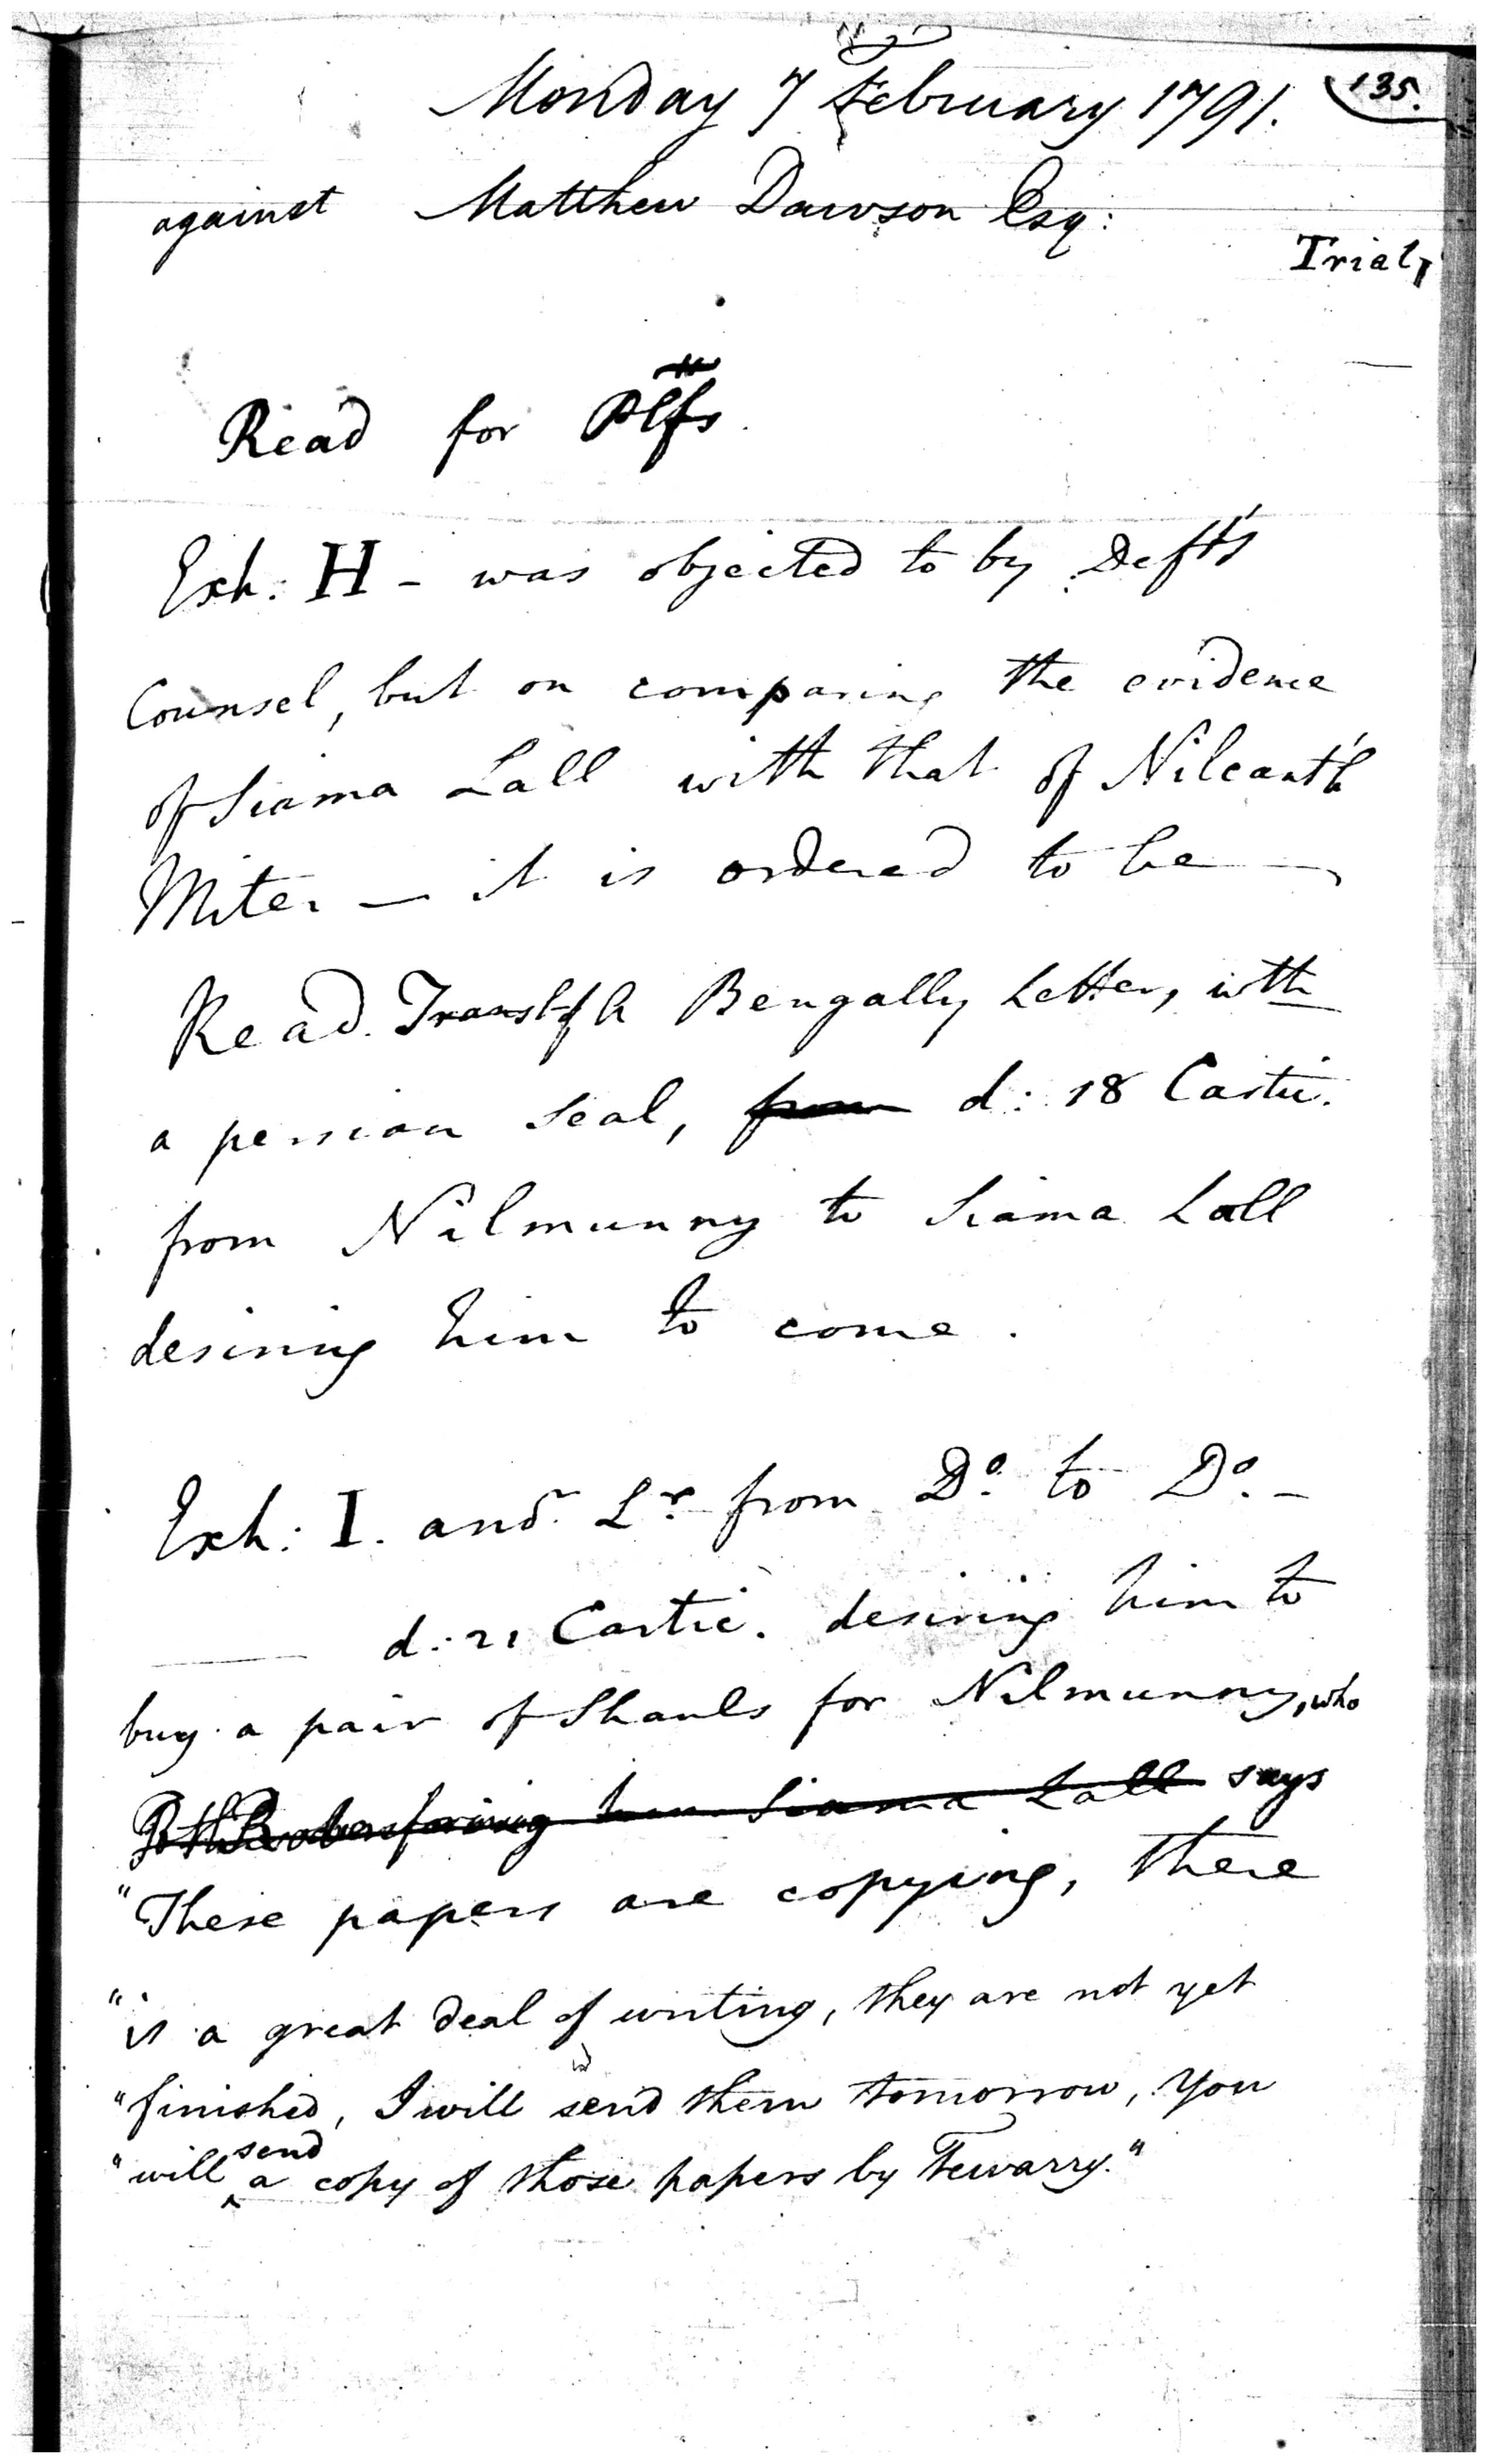 Monday 7 February 1791. 135.
against Matthew Dawson Esq:
Trial,
Read for Plfs.
Exh: H - was objected to by Deft's
Counsel, but on comparing the evidence
of Siama Lall with that of Nilcant'h
Miter — it is ordered to be —
Read. Transl: of A Bengally Letter, with
a persian Seal, from d: 18 Cartic.
from Nilmunny to Siama Lall
desiring him to come.
Exh: I. anor. Lr. from Do. to Do. -
d: 21 Cartic. desiring him to
buy a pair of Shauls for Nilmunny, who
Siama Lall says
"These papers are copying, there
"is a great deal of writing, they are not yet
"finished, I will send them tomorrow, you
"will send a copy of those papers by Tewarry."